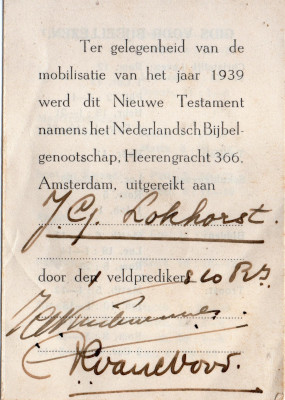 Ter gelegenheid van de
mobilisatie van het jaar 1939
werd dit Nieuwe Testament
namens het Nederlandsch Bijbel-
genootschap, Heerengracht 366,
Amsterdam, uitgereikt aan
J.C.J. Lokhorst.
door den veldprediker